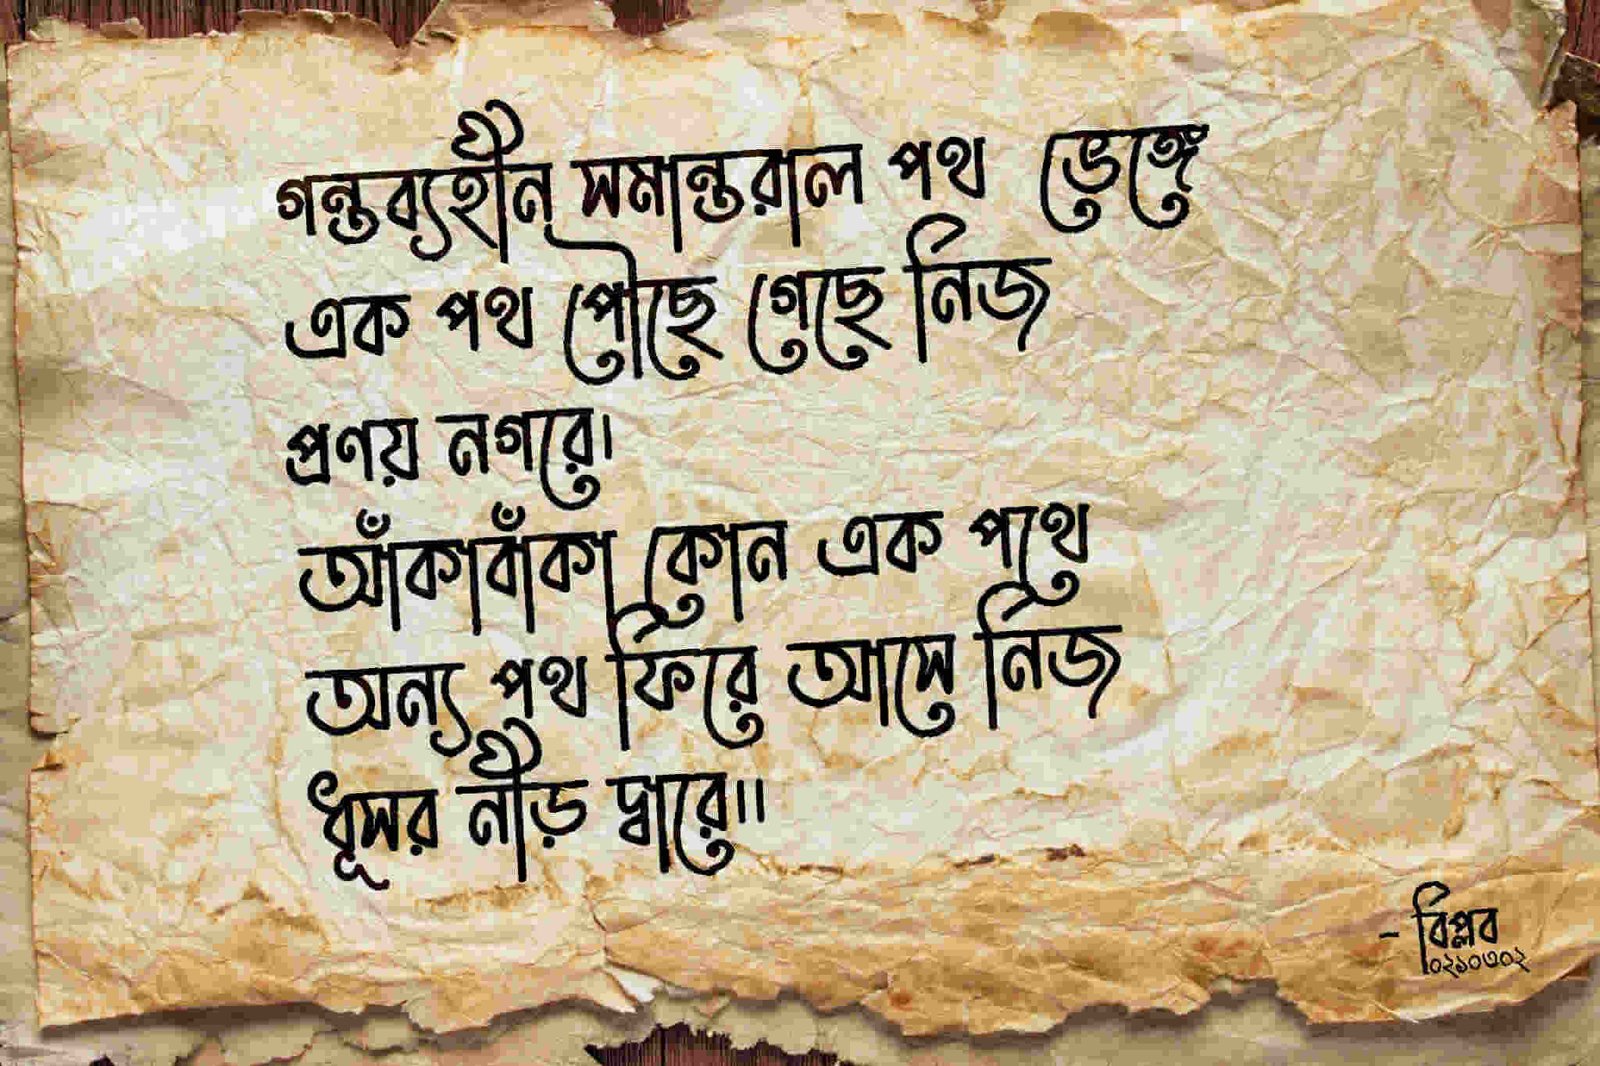 গন্তব্যহীন সমান্তরাল পথ ভেঙ্গে
এক পথ পৌছে গেছে নিজ
প্রণয় নগরে।
আঁকাবাঁকা কোন এক পথে
অন্য পথ ফিরে আসে নিজ
ধূসর নীড় দ্বারে।।
- বিপ্লব
০২১০৩০২